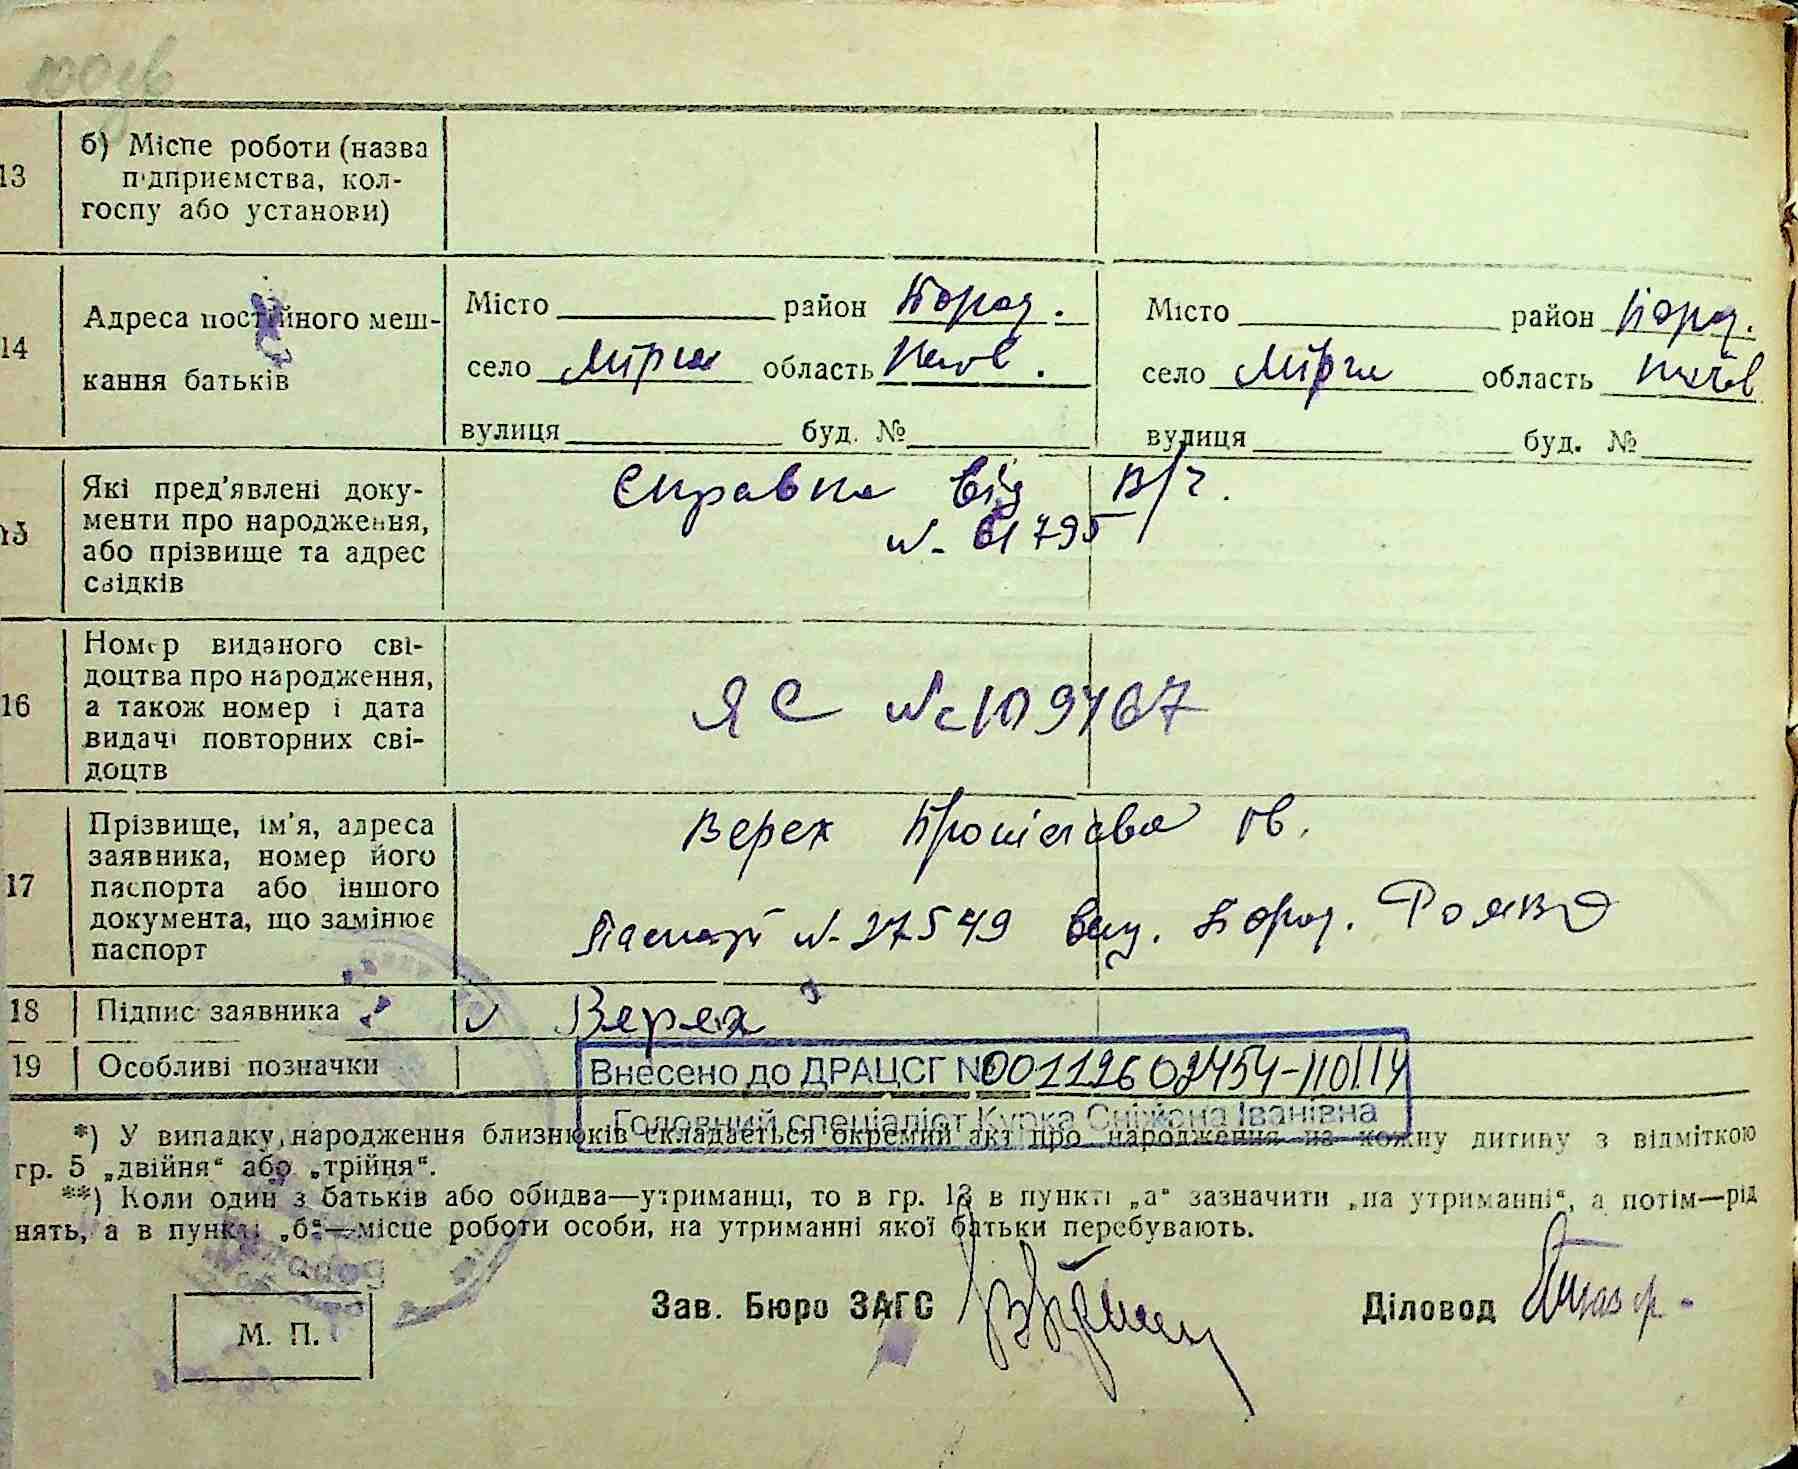 13
б) Місце роботи (назва
підприємства, кол-
госпу або установи)
14
Адреса постійного меш-
кання батьків
Місто район Город.
село область Львів.
вулиця буд. №
Місто район Город.
село область Львів
вулиця буд. №
15
Які пред'явлені доку-
менти про народження,
або прізвище та адрес
свідків
Справка від в/ч.
№ 61795
16
Номер виданого сві-
доцтва про народження,
а також номер і дата
видачі повторних сві-
доцтв
ЯС №
17
Прізвище, ім'я, адреса
заявника, номер його
паспорта або іншого
документа, що замінює
паспорт
Верех
Паспорт № 27549 вид. Город.
18 Підпис заявника
Верех
19 Особливі позначки
Внесено до ДРАЦСГ №
Головний спеціаліст Курка Сніжана Іванівна
*) У випадку народження близнюків складається окремий акт про народження на кожну дитину з відміткою
гр. 5 „двійня“ або „трійня“.
**) Коли один з батьків або обидва—утриманці, то в гр. 13 в пункті „а“ зазначити „на утриманні“, а потім—рід
нять, а в пункті „б“—місце роботи особи, на утриманні якої батьки перебувають.
Зав. Бюро ЗАГС
Діловод
М. П.